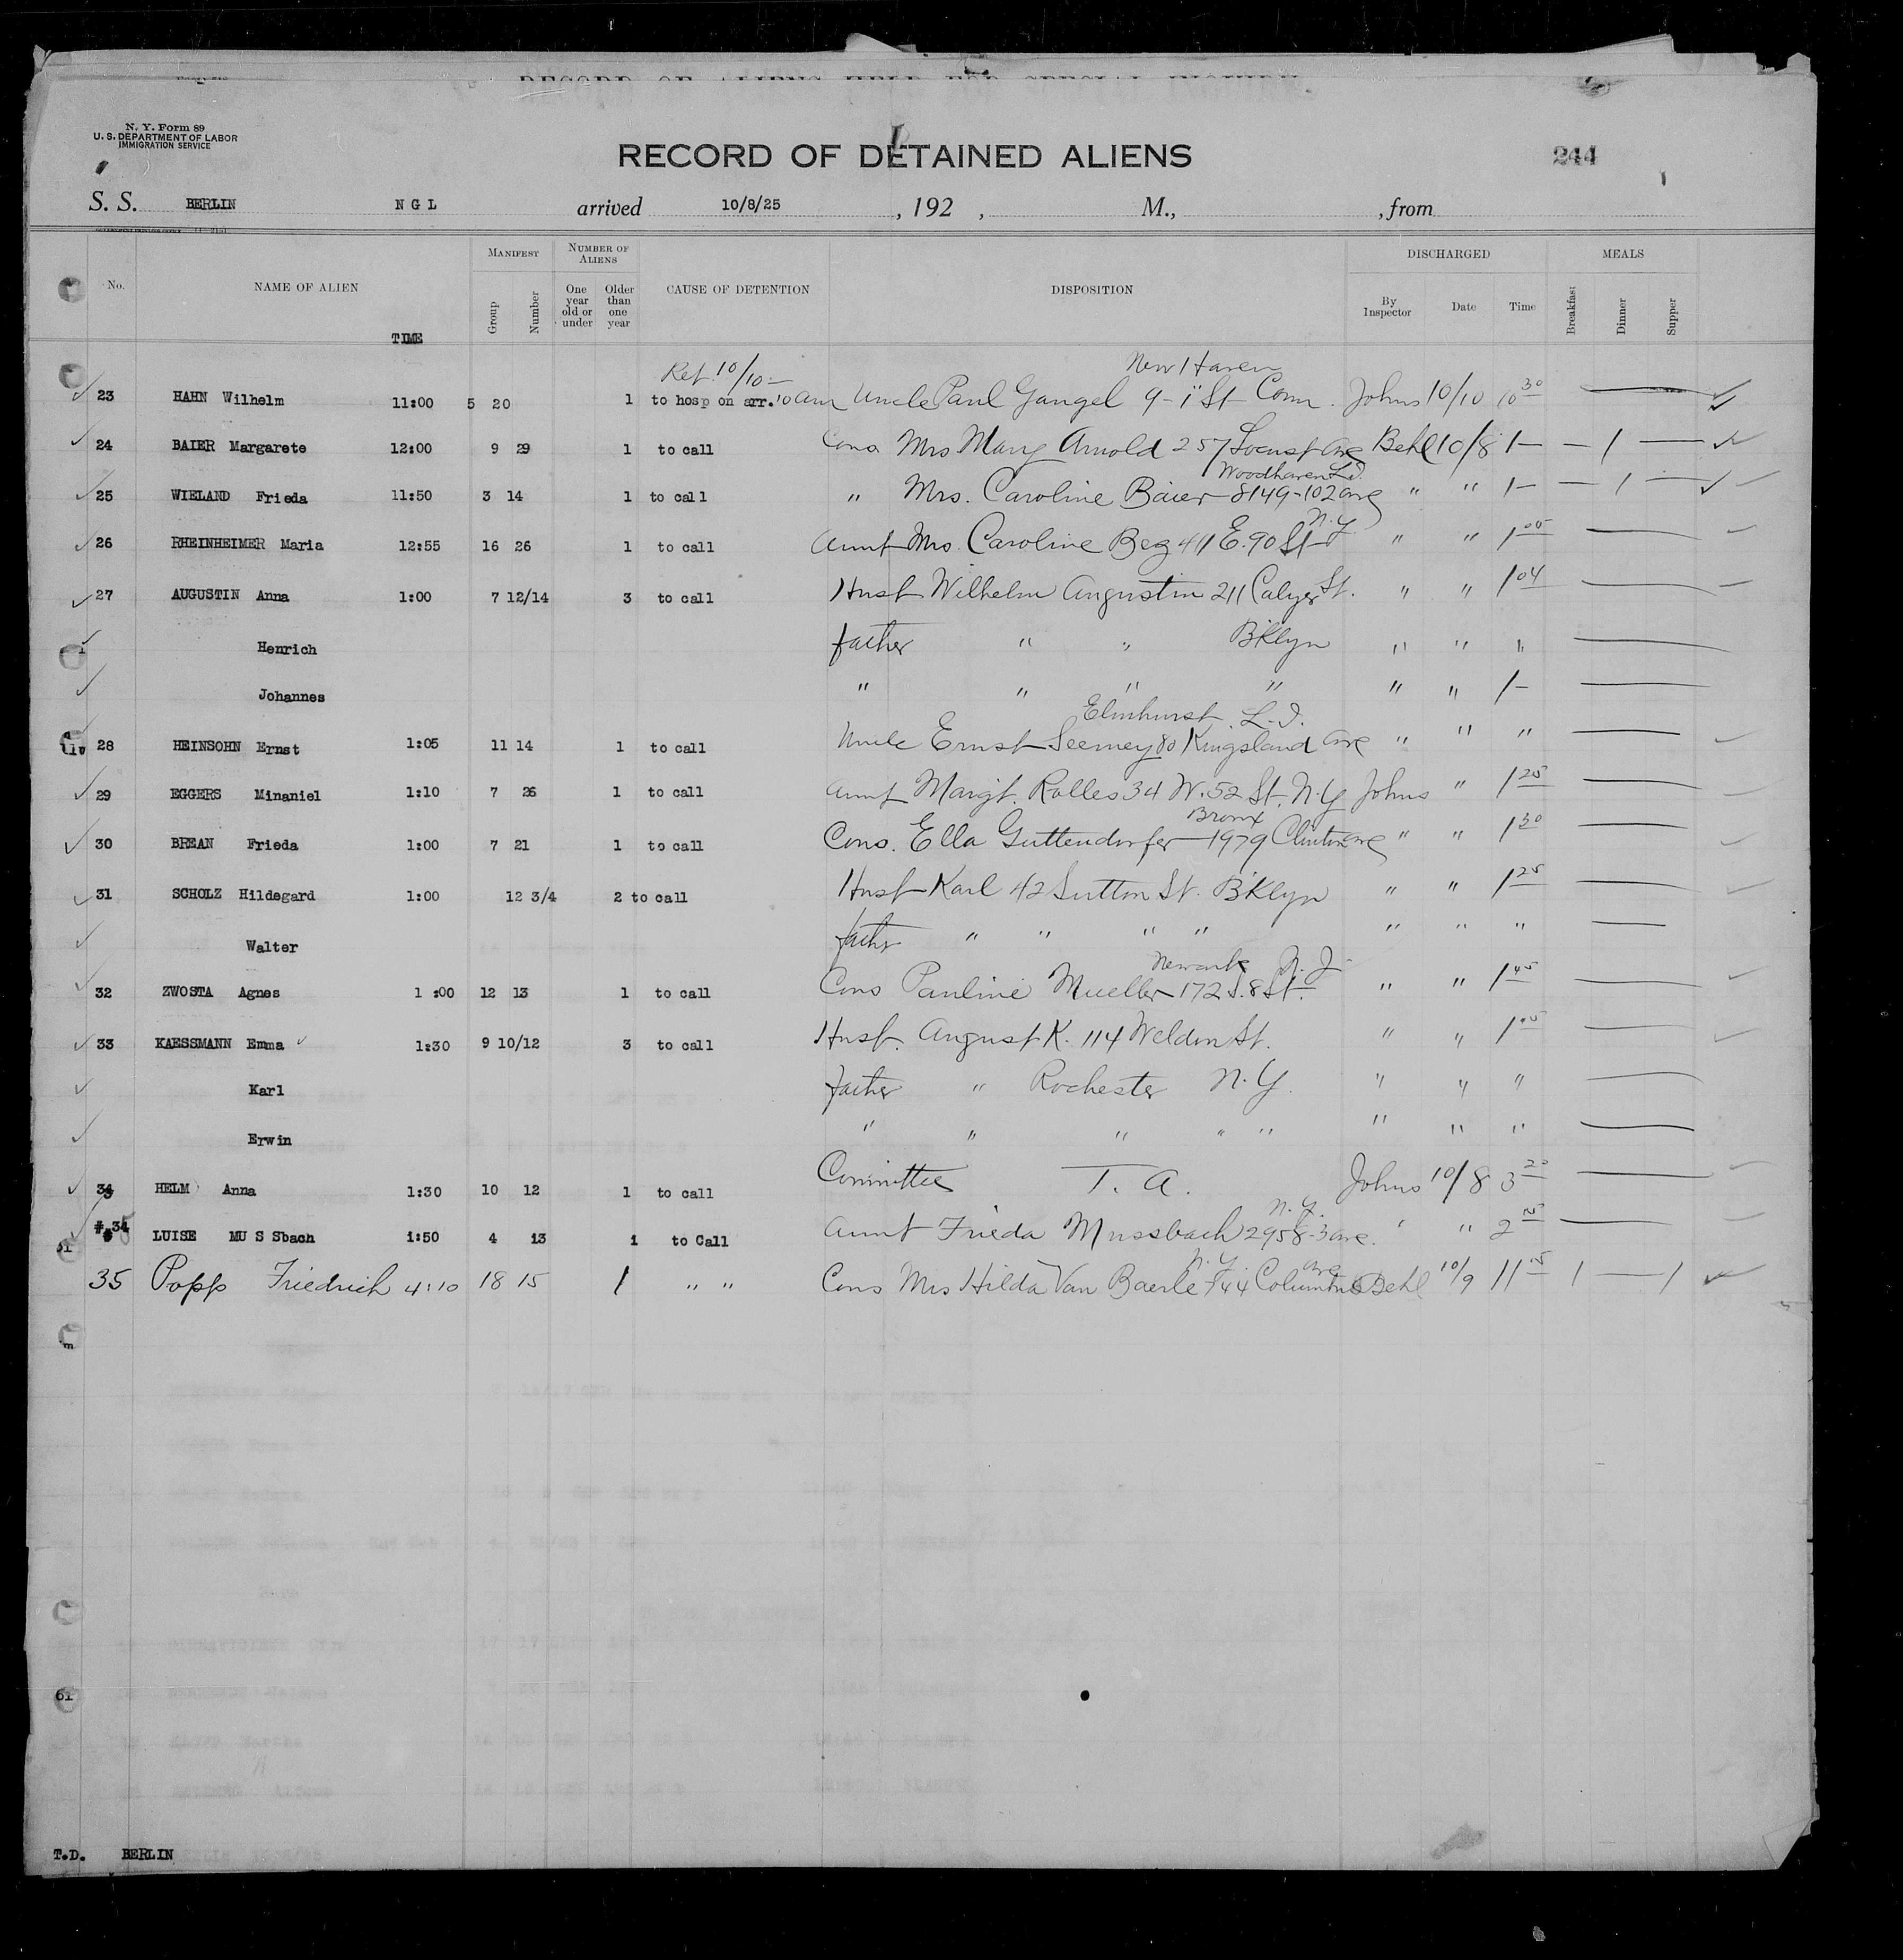 N. Y. Form 89
U. S. DEPARTMENT OF LABOR
IMMIGRATION SERVICE
RECORD OF DETAINED ALIENS
244
S. S. BERLIN N G L arrived 10/8/25 , 192 , M., , from
No. NAME OF ALIEN TIME MANIFEST Group Number NUMBER OF ALIENS One year old or under Older than one year CAUSE OF DETENTION DISPOSITION DISCHARGED By Inspector Date Time MEALS Breakfast Dinner Supper
Ret 10/10 — New Haven
23 HAHN Wilhelm 11:00 5 20 1 to hosp on arr. 10 am Uncle Paul Gangel 9-1 St Conn. Johns 10/10 10 30
24 BAIER Margarete 12:00 9 29 1 to call Cons Mrs Mary Arnold 257 Locust Ave Behl 10/8 1— — 1 —
Woodhaven L.I.
25 WIELAND Frieda 11:50 3 14 1 to call " Mrs. Caroline Baier - 8149-102 ave " " 1— — 1 —
N.Y
26 RHEINHEIMER Maria 12:55 16 26 1 to call Aunt Mrs. Caroline Beg 411 E. 90 St " " 1 00
27 AUGUSTIN Anna 1:00 7 12/14 3 to call Husb Wilhelm Augustin 211 Calyer St. " " 1 04
Henrich father " " B'klyn " " "
Johannes " " " " " " 1—
Elmhurst. L.I.
28 HEINSOHN Ernst 1:05 11 14 1 to call Uncle Ernst 80 Kingsland ave " " "
29 EGGERS Minaniel 1:10 7 26 1 to call Aunt Margt. Rolles 34 W. 52 St. N.Y Johns " 1 25
Bronx
30 BREAN Frieda 1:00 7 21 1 to call Cons. Ella Guttendorfer - 1979 Clinton ave " " 1 30
31 SCHOLZ Hildegard 1:00 12 3/4 2 to call Husb Karl 42 Sutton St. B'klyn " " 1 25
Walter father " " " " " " "
Newark N.J.
32 ZWOSTA Agnes 1 :00 12 13 1 to call Cons Pauline Mueller - 172 S. 8 St. " " 1 45
33 KAESSMANN Emma 1:30 9 10/12 3 to call Husb. August K. 114 Weldon St. " " 1 45
Karl father " Rochester N.Y. " " "
Erwin " " " " " " " "
34 HELM Anna 1:30 10 12 1 to call Committee T. A. Johns 10/8 3 20
N.Y.
# 34 LUISE MU S Sbach 1:50 4 13 1 to Call Aunt Frieda Mussbach 2958-3 ave. " " 2
N.Y. Ave
35 Popp Friedrich 4:10 18 15 1 " " Cons Mrs Hilda Van Baerle 744 Columbus Behl 10/9 11 15 1 — 1
T.D. BERLIN